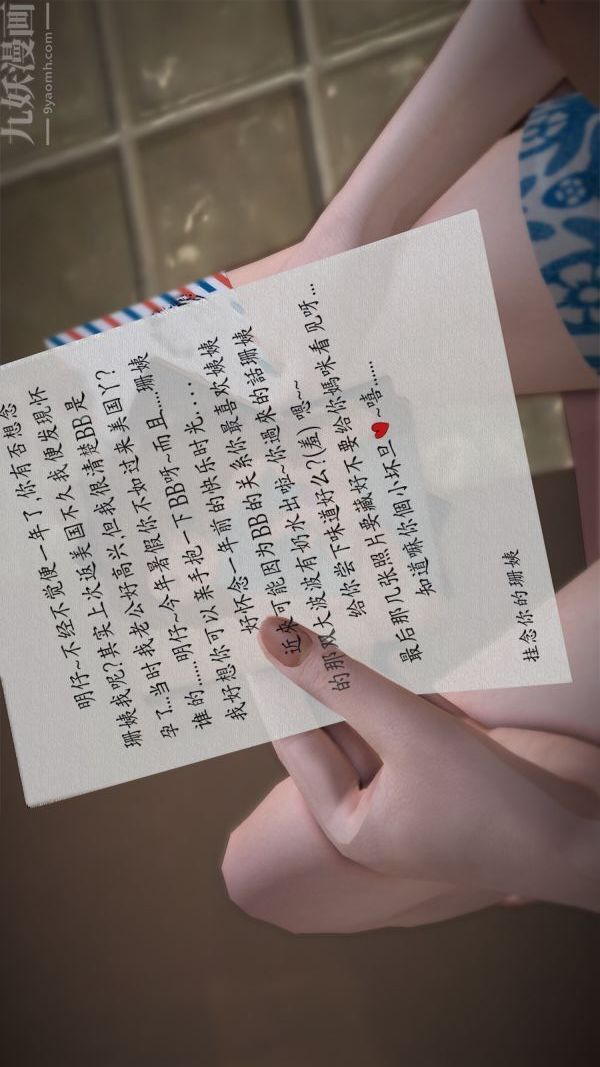 九妖漫画
9yaomh.com
明仔~不经不觉便一年了,你有否想念
珊姨我呢?其实上次返美国不久我便发现怀
孕了...当时我老公好高兴,但我很清楚BB是
谁的......明仔~今年暑假你不如过来美国丫?
我好想你可以亲手抱一下BB呀~而且....珊姨
好怀念一年前的快乐时光....
近來可能因为BB的关系你最喜欢姨姨
的那双大波波有奶水出啦~你過來的話珊姨
给你尝下味道好么?(羞) 嗯~~
最后那几张照片要藏好不要给你媽咪看见呀...
知道嘛你個小坏旦❤~嘻......
挂念你的珊姨